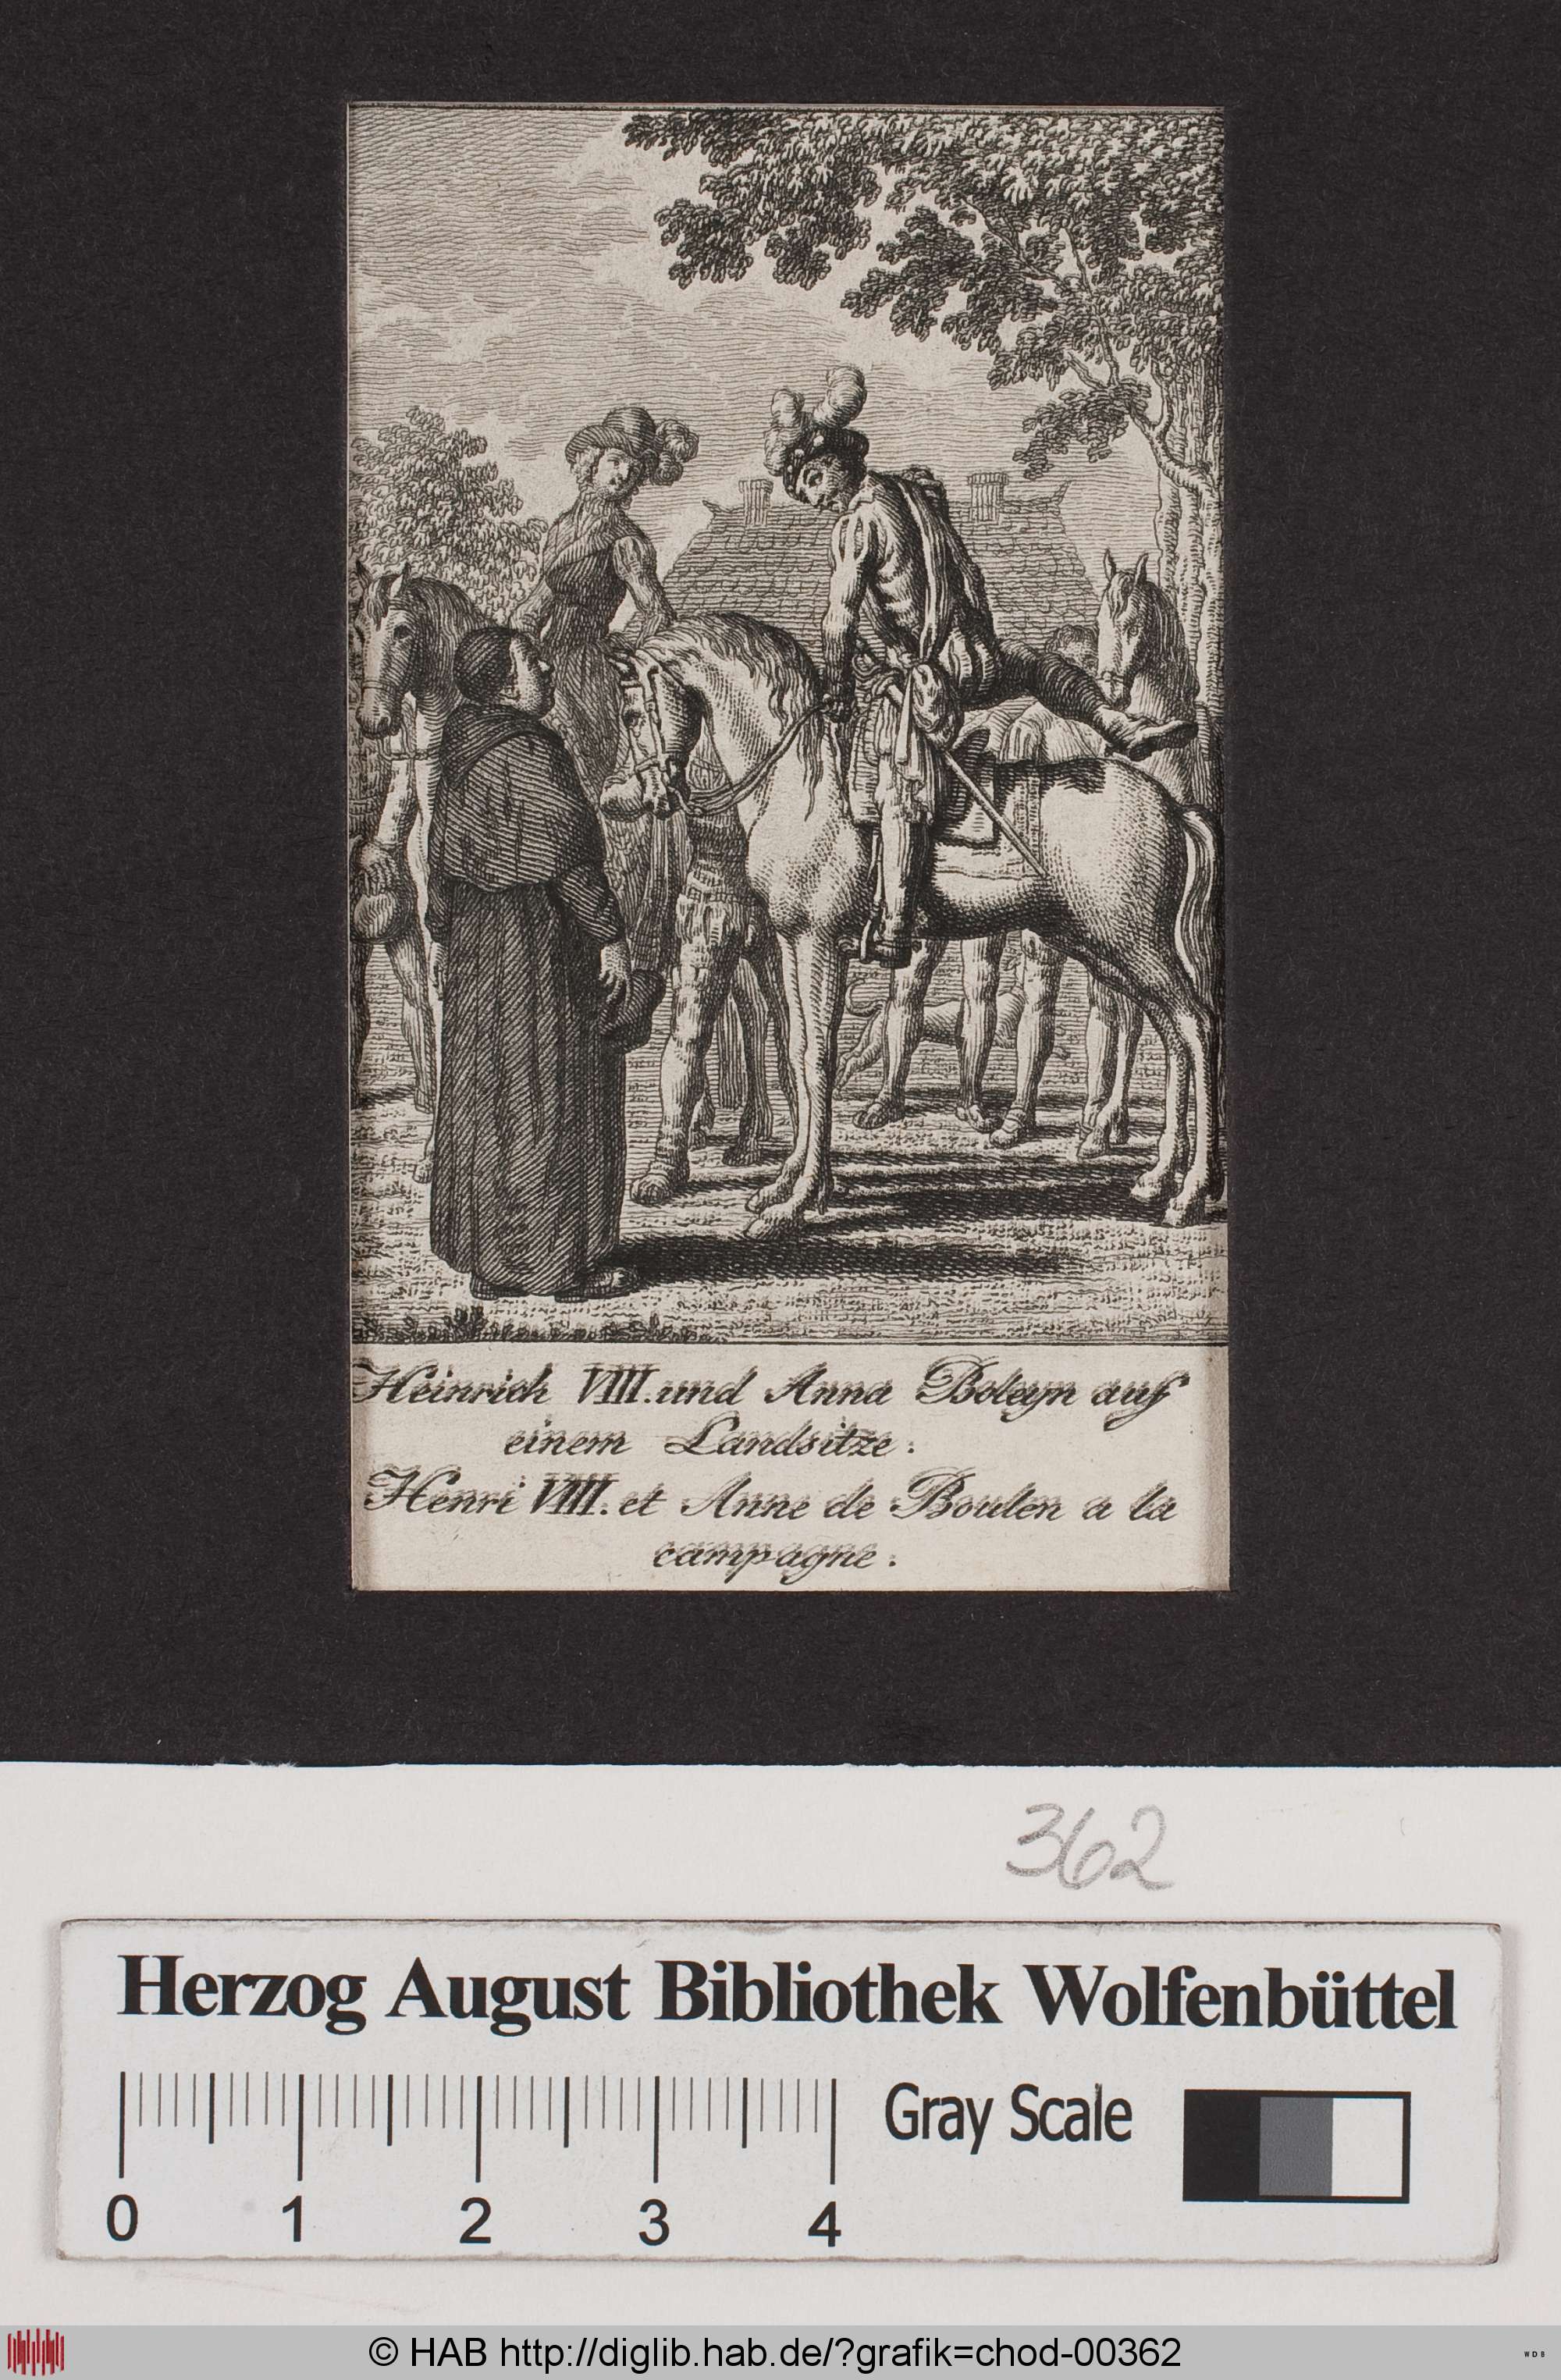 Heinrich VIII. und Anna Boleyn auf
einem Landsitze.
Henri VIII. et Anne de Boulen a la
campagne.
362
Herzog August Bibliothek Wolfenbüttel
Gray Scale
0 1 2 3 4
© HAB http://diglib.hab.de/?grafik=chod-00362
WDB